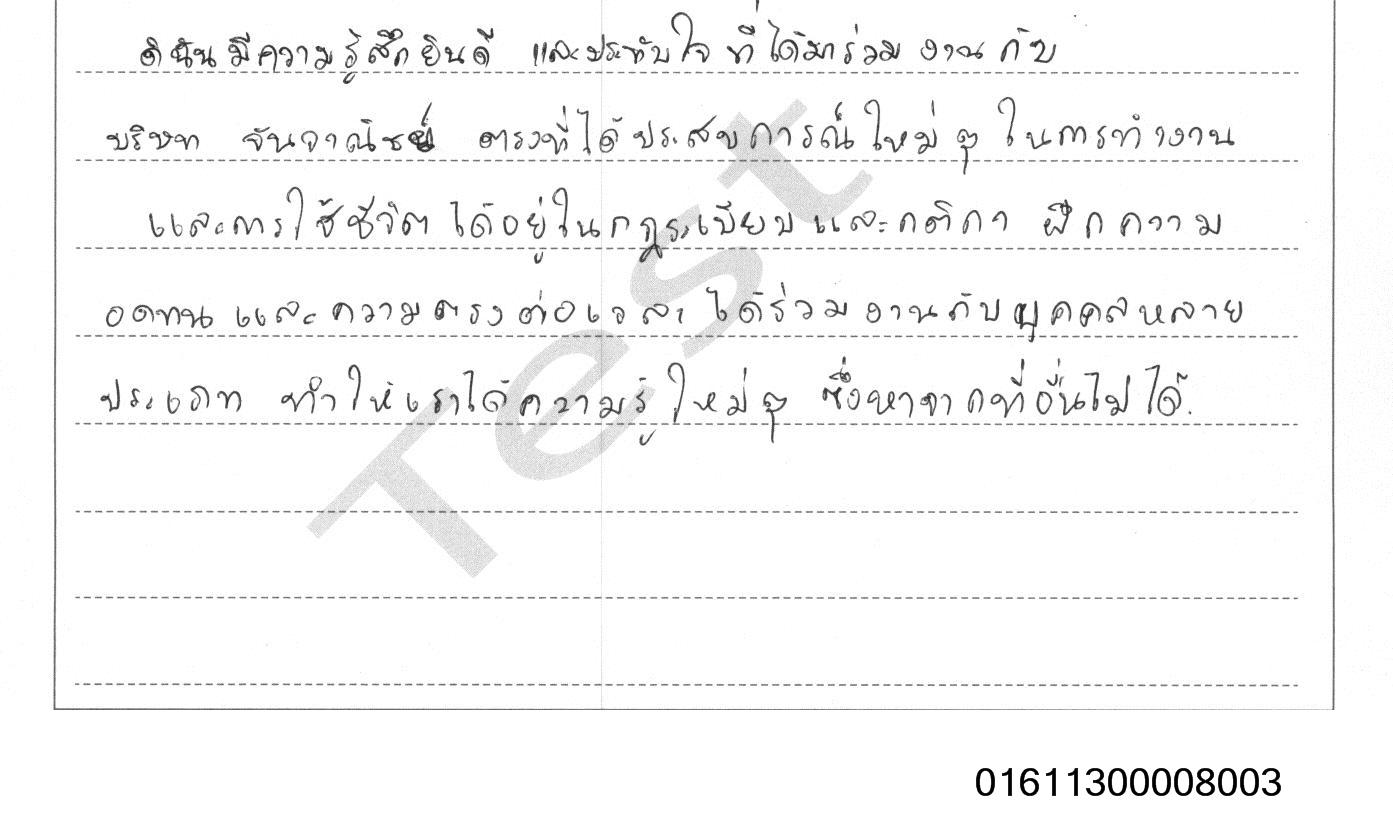 ดิฉันมีความรู้สึกยินดี และประทับใจ ที่ได้มาร่วม งานกับ
บริษัท จันวาณิชย์ ตรงที่ได้ประสบการณ์ใหม่ๆ ในการทำงาน
และการใช้ชีวิต ได้อยู่ในกฎระเบียบและกติกา ฝึกความ
อดทน และความตรงต่อเวลา ได้ร่วมงานกับบุคคลหลาย
ประเภท ทำให้เราได้ความรู้ใหม่ๆ ซึ่งหาจากที่อื่นไม่ได้.
Test
01611300008003